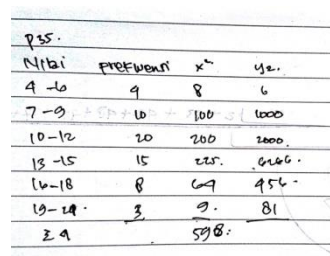 P35.
Nilai Frekwensi x² y².
4-6 4 8 6
7-9 10 100 1000
10-12 20 200 2000.
13-15 15 225.
16-18 8 64 456.
19-21. 3 9. 81
598.